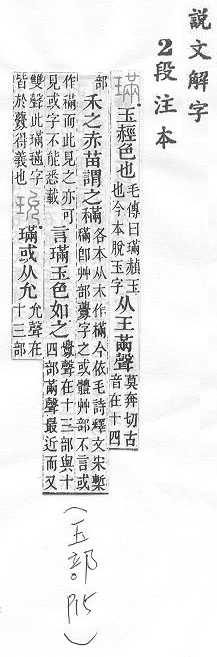 說文解字
2段注本
璊 玉䞓色也
毛傳曰璊赬玉
也今本脫玉字
从王㒼聲
莫奔切古
音在十四
部
禾之赤苗謂之䅼
各本从木作樠今依毛詩釋文宋槧
䅼卽艸部虋字之或體艸部不言或
作䅼而此見之亦可
見或字不能悉載
言璊玉色如之
虋聲在十三部與十
四部㒼聲最近而又
雙聲此璊䅼字
皆於虋得義也
玧 璊或从允
允聲在
十三部
(玉部 P15)